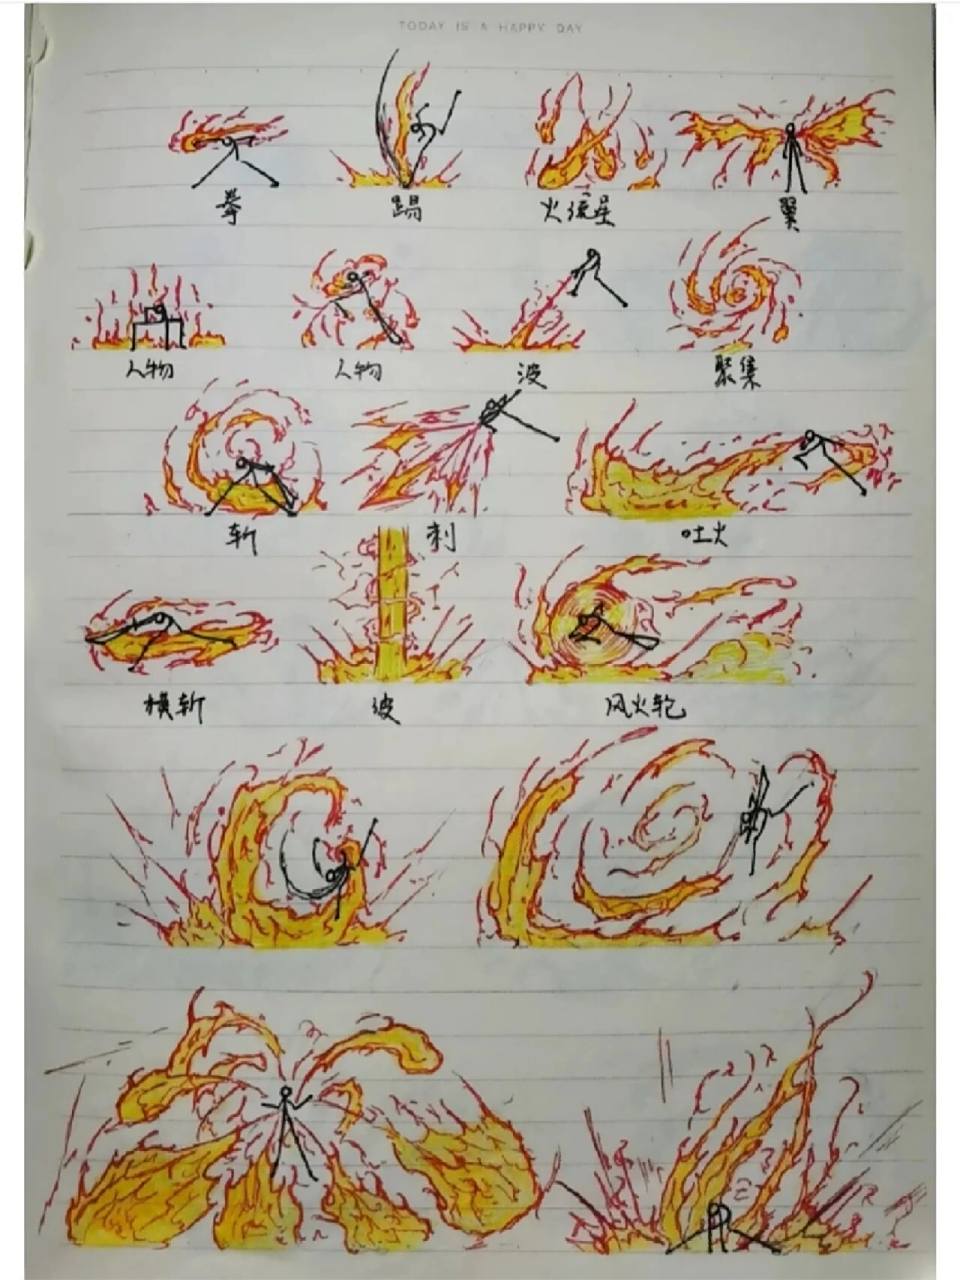 TODAY IS A HAPPY DAY
拳 踢 火流星 翼
人物 人物 波 聚集
斩 刺 吐火
横斩 波 风火轮